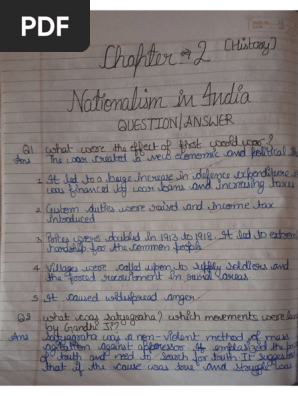 PDF
Chapter # 2 [History]
Nationalism in India
QUESTION/ANSWER
Q1 what were the effect of first world war?
Ans The war created a new economic and political
1. It led to a large increase in defence expenditure
was financed by war loans and increasing taxes
2. Custom duties were raised and income tax
introduced
3. Prices were doubled in 1913 to 1918. It led to extreme
hardship for the common people
4. Villages were called upon to supply soldiers and
the forced recruitment in rural areas
5. It caused widespread anger.
Q2 what was satyagraha? which movements were
by Gandhi Ji?
Ans satyagraha was a non-violent method of mass
agitation against oppressor. It emphasised the
of truth and need to search for truth It suggested
that if the cause was true and struggle was